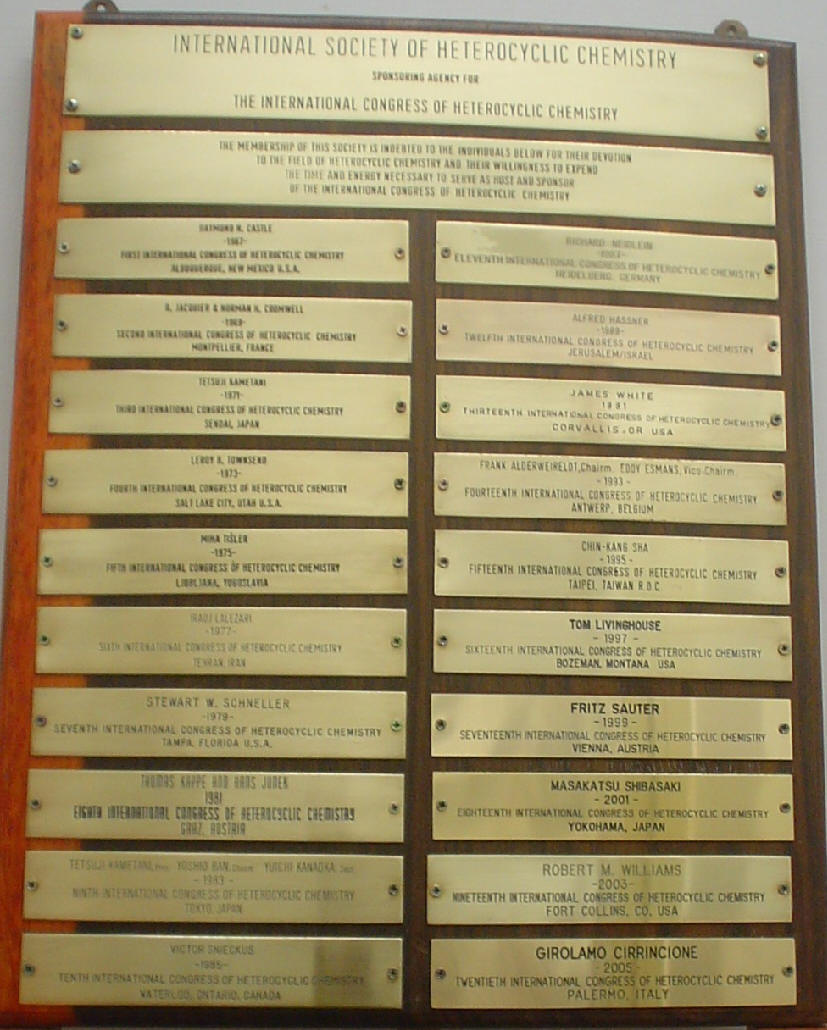 INTERNATIONAL SOCIETY OF HETEROCYCLIC CHEMISTRY
SPONSORING AGENCY FOR
THE INTERNATIONAL CONGRESS OF HETEROCYCLIC CHEMISTRY
THE MEMBERSHIP OF THIS SOCIETY IS INDEBTED TO THE INDIVIDUALS BELOW FOR THEIR DEVOTION
TO THE FIELD OF HETEROCYCLIC CHEMISTRY AND THEIR WILLINGNESS TO EXPEND
THE TIME AND ENERGY NECESSARY TO SERVE AS HOST AND SPONSOR
OF THE INTERNATIONAL CONGRESS OF HETEROCYCLIC CHEMISTRY
RAYMOND N. CASTLE
-1967-
FIRST INTERNATIONAL CONGRESS OF HETEROCYCLIC CHEMISTRY
ALBUQUERQUE, NEW MEXICO U.S.A.
R. JACQUIER & NORMAN H. CROMWELL
-1969-
SECOND INTERNATIONAL CONGRESS OF HETEROCYCLIC CHEMISTRY
MONTPELLIER, FRANCE
TETSUJI KAMETANI
-1971-
THIRD INTERNATIONAL CONGRESS OF HETEROCYCLIC CHEMISTRY
SENDAI, JAPAN
LEROY B. TOWNSEND
-1973-
FOURTH INTERNATIONAL CONGRESS OF HETEROCYCLIC CHEMISTRY
SALT LAKE CITY, UTAH U.S.A.
MIHA TIŠLER
-1975-
FIFTH INTERNATIONAL CONGRESS OF HETEROCYCLIC CHEMISTRY
LJUBLJANA, YUGOSLAVIA
IRADJ LALEZARI
-1977-
SIXTH INTERNATIONAL CONGRESS OF HETEROCYCLIC CHEMISTRY
TEHRAN, IRAN
STEWART W. SCHNELLER
-1979-
SEVENTH INTERNATIONAL CONGRESS OF HETEROCYCLIC CHEMISTRY
TAMPA, FLORIDA U.S.A.
THOMAS KAPPE AND HANS JUNEK
1981
EIGHTH INTERNATIONAL CONGRESS OF HETEROCYCLIC CHEMISTRY
GRAZ, AUSTRIA
TETSUJI KAMETANI, YOSHIO BAN, YUICHI KANAOKA,
-1983-
NINTH INTERNATIONAL CONGRESS OF HETEROCYCLIC CHEMISTRY
TOKYO, JAPAN
VICTOR SNIECKUS
-1985-
TENTH INTERNATIONAL CONGRESS OF HETEROCYCLIC CHEMISTRY
WATERLOO, ONTARIO, CANADA
RICHARD NEIDLEIN
ELEVENTH INTERNATIONAL CONGRESS OF HETEROCYCLIC CHEMISTRY
HEIDELBERG, GERMANY
ALFRED HASSNER
-1989-
TWELFTH INTERNATIONAL CONGRESS OF HETEROCYCLIC CHEMISTRY
JERUSALEM/ISRAEL
JAMES WHITE
1991
THIRTEENTH INTERNATIONAL CONGRESS OF HETEROCYCLIC CHEMISTRY
CORVALLIS, OR USA
FRANK ALDERWEIRELDT, Chairm. EDDY ESMANS, Vice-Chairm.
-1993-
FOURTEENTH INTERNATIONAL CONGRESS OF HETEROCYCLIC CHEMISTRY
ANTWERP, BELGIUM
CHIN-KANG SHA
-1995-
FIFTEENTH INTERNATIONAL CONGRESS OF HETEROCYCLIC CHEMISTRY
TAIPEI, TAIWAN R.O.C.
TOM LIVINGHOUSE
- 1997 -
SIXTEENTH INTERNATIONAL CONGRESS OF HETEROCYCLIC CHEMISTRY
BOZEMAN, MONTANA USA
FRITZ SAUTER
- 1999 -
SEVENTEENTH INTERNATIONAL CONGRESS OF HETEROCYCLIC CHEMISTRY
VIENNA, AUSTRIA
MASAKATSU SHIBASAKI
- 2001 -
EIGHTEENTH INTERNATIONAL CONGRESS OF HETEROCYCLIC CHEMISTRY
YOKOHAMA, JAPAN
ROBERT M. WILLIAMS
-2003-
NINETEENTH INTERNATIONAL CONGRESS OF HETEROCYCLIC CHEMISTRY
FORT COLLINS, CO, USA
GIROLAMO CIRRINCIONE
- 2005 -
TWENTIETH INTERNATIONAL CONGRESS OF HETEROCYCLIC CHEMISTRY
PALERMO, ITALY